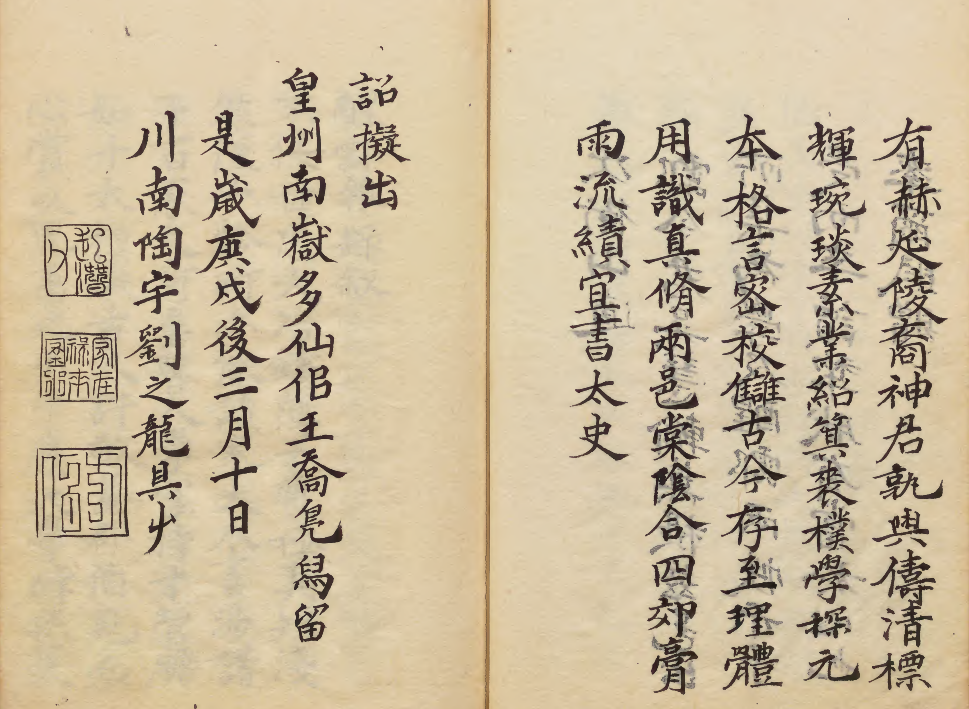 有赫延陵裔神君孰與儔清標
輝琬琰素業紹箕裘樸學探元
本格言密校讎古今存至理體
用識真脩兩邑棠陰合四郊膏
雨流績宜書太史
詔擬出
皇州南嶽多仙侣王喬鳧舄留
是歲庚戌後三月十日
川南陶宇劉之龍具艸